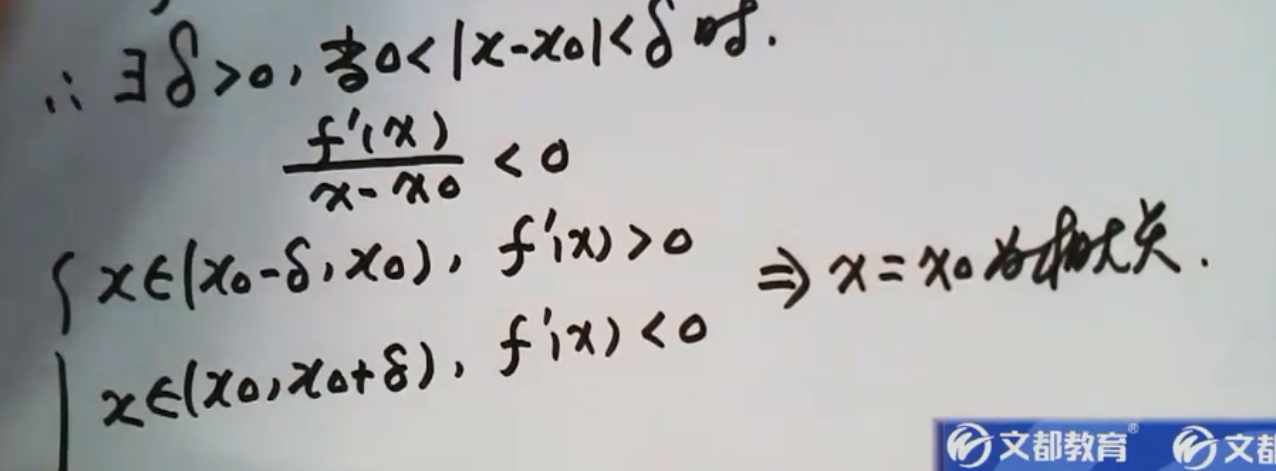 ∴ ∃δ>0, 当0<|x-x0|<δ时.
f'(x)/(x-x0) < 0
{ x∈(x0-δ, x0), f'(x)>0
x∈(x0, x0+δ), f'(x)<0
⇒ x=x0为极大点.
文都教育® 文都